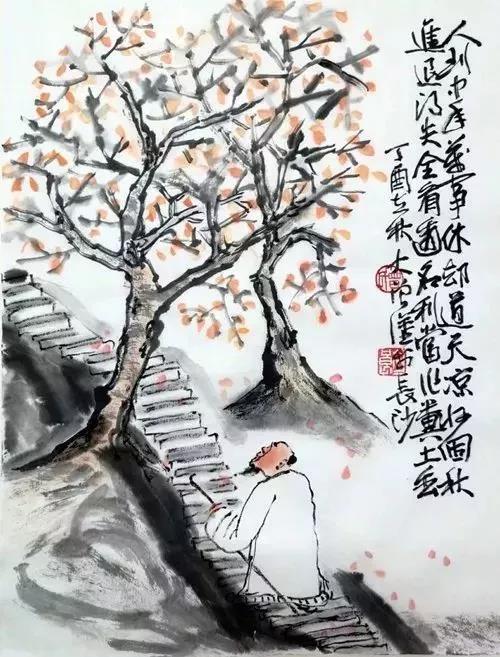 人到中年萬事休却道天凉好個秋
進退得失全看透名利當作糞土丢
丁酉立秋大漢長沙